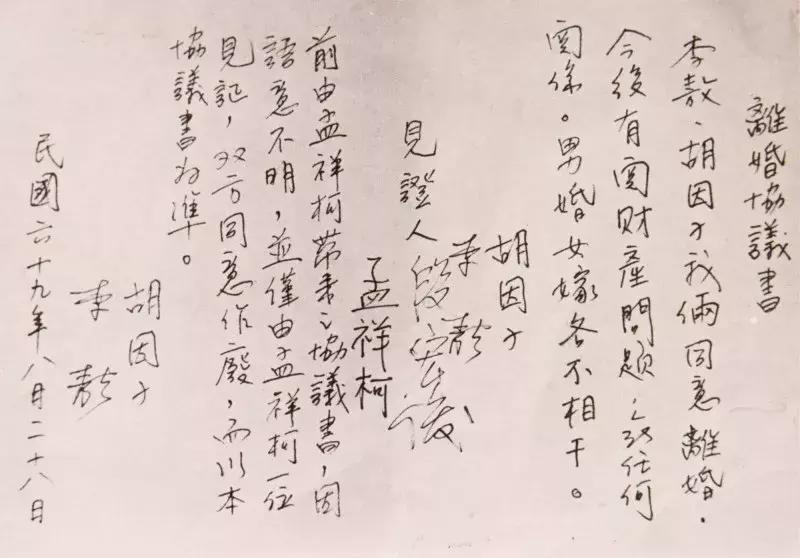 離婚協議書
李敖、胡因子我倆同意離婚.
今後有関財產問題,及任何
関係。男婚女嫁各不相干。
胡因子
李敖
見證人 段宏俊
孟祥柯
前由孟祥柯帶來之協議書,因
語意不明,並僅由孟祥柯一位
見証,双方同意作廢,而以本
協議書為準。
胡因子
李敖
民國六十九年八月二十八日